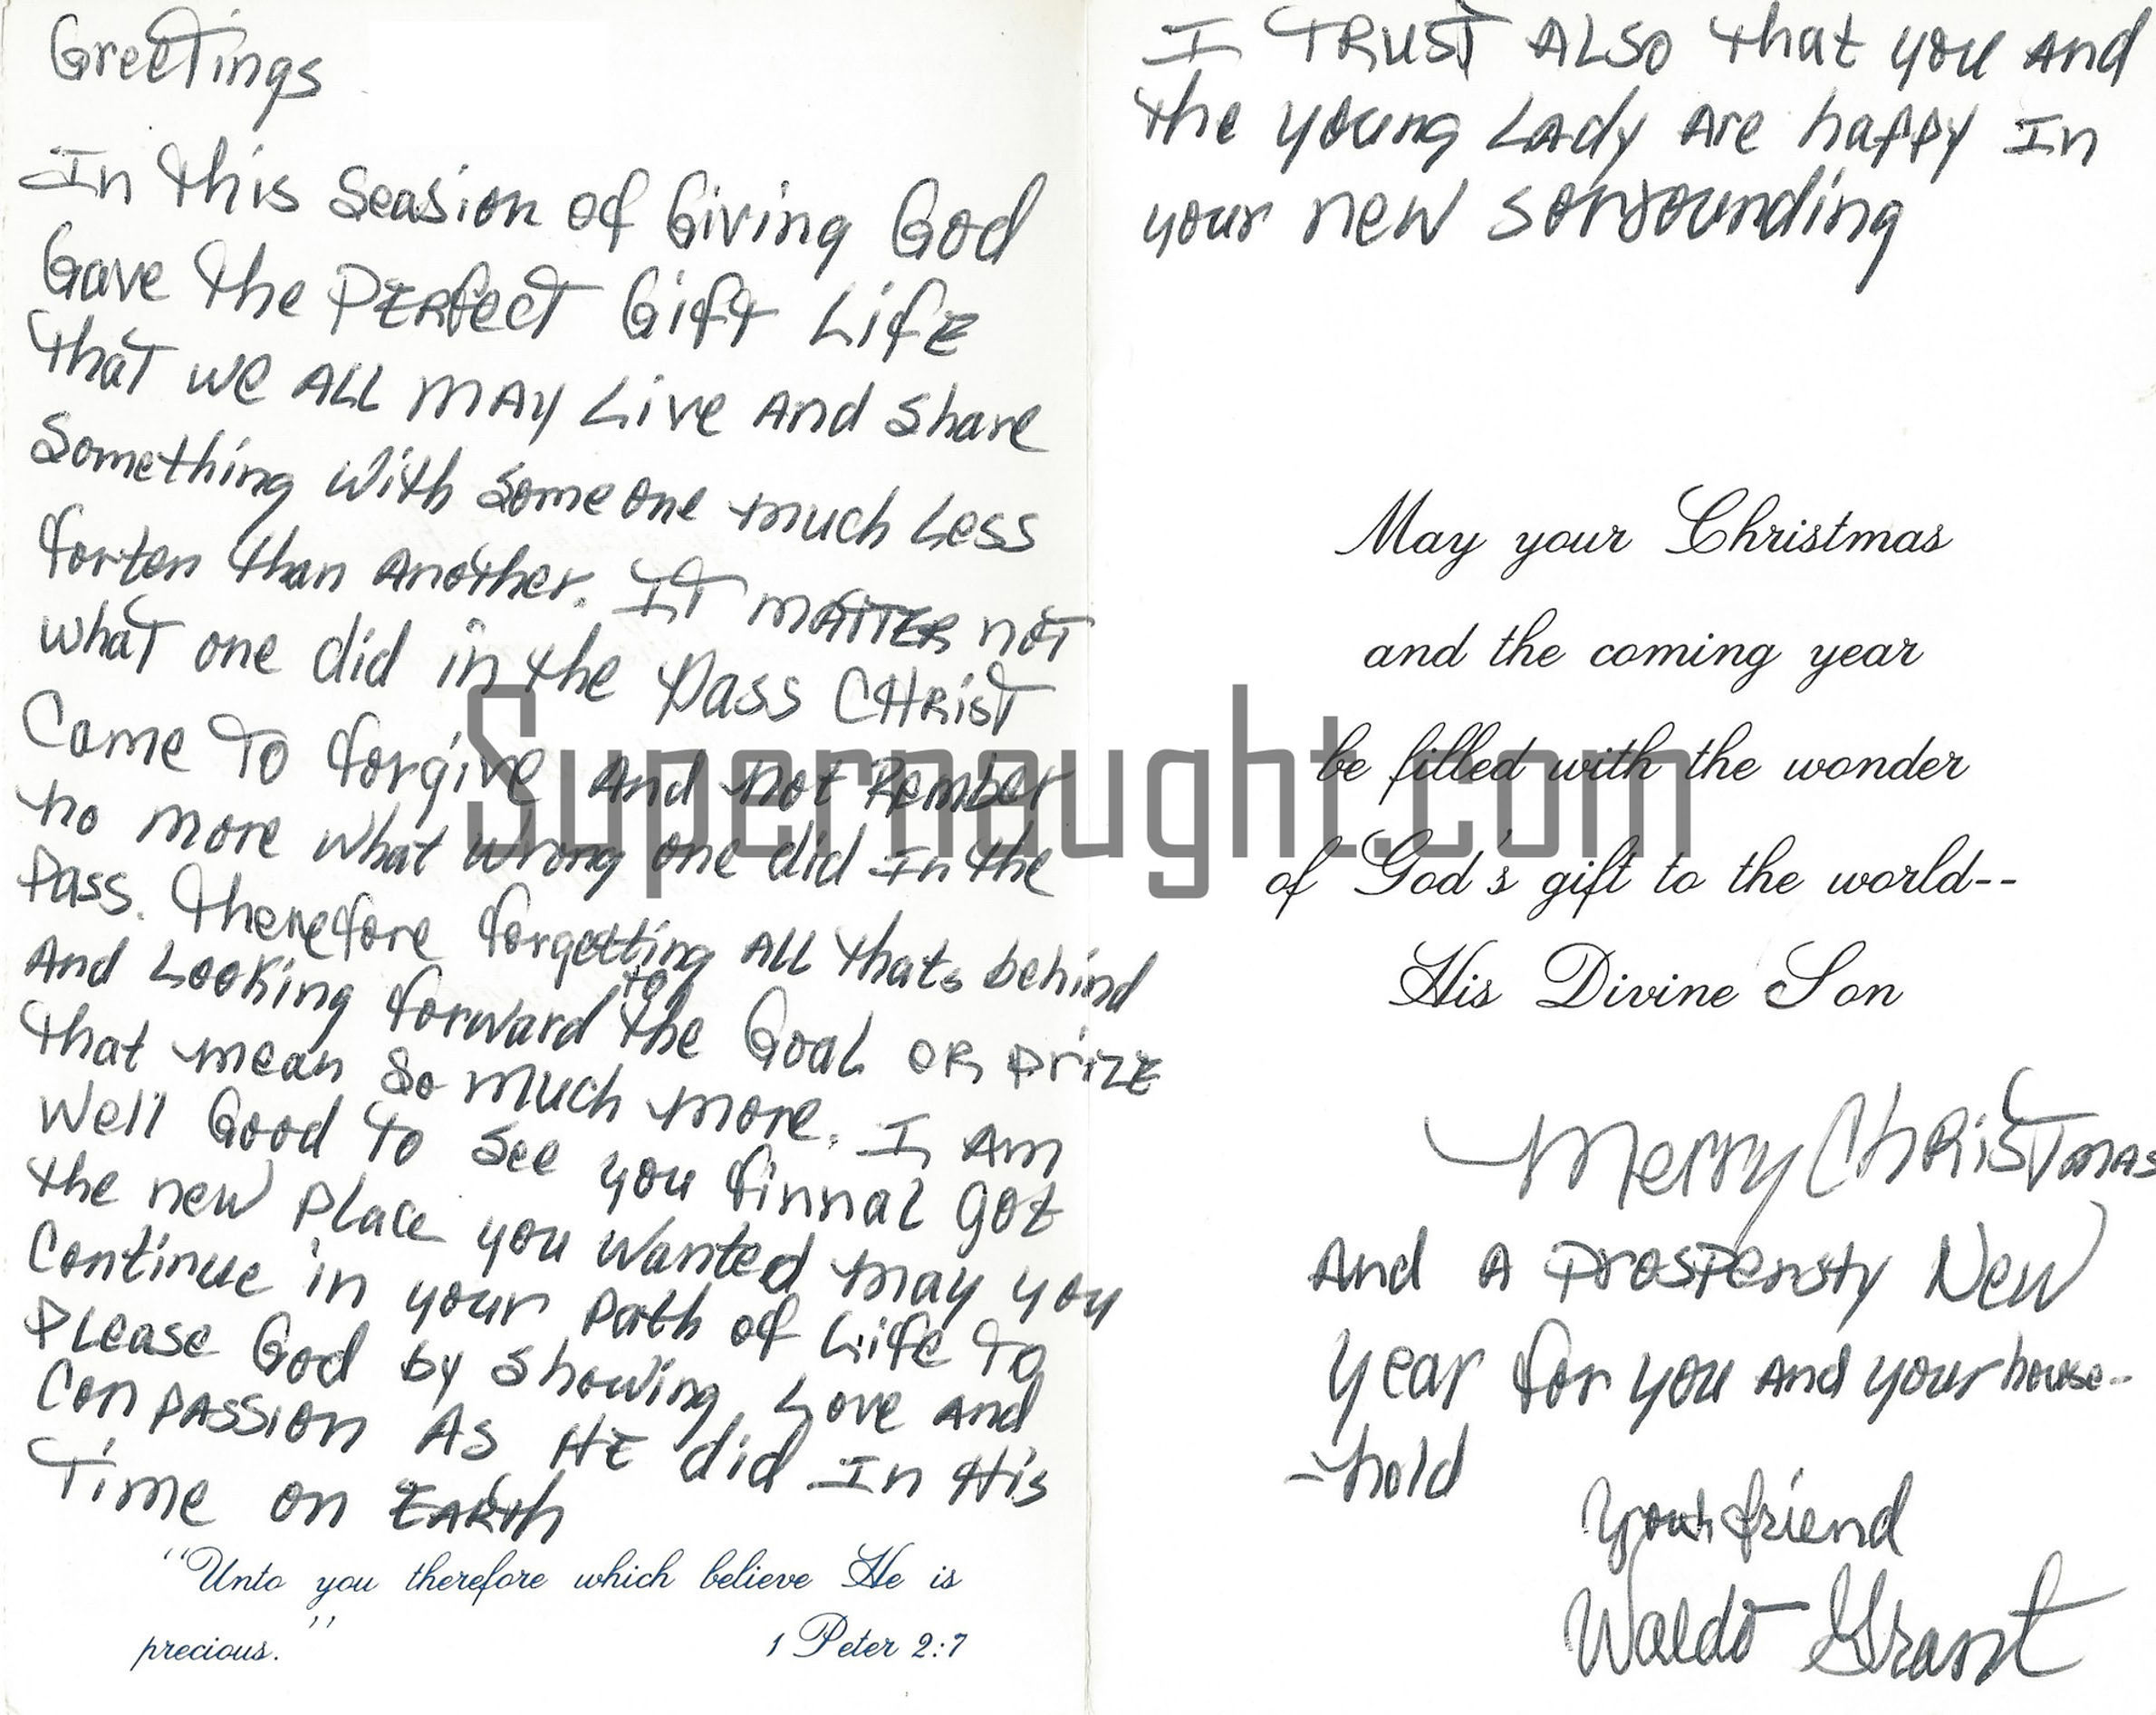 Greetings
In this Seasion of Giving God
Gave the PERfecT Gift LifE
that we ALL MAy Live And share
Something With someone much Less
forten than Another. IT mATTER not
what one did in the Pass CHRisT
Came To forgive And not Rember
no more what wrong one did In the
Pass. Therefore forgetting ALL thats behind
And Looking forward to the Goal OR prizE
that mean so much more. I Am
Well Good to see you finnal got
the new place you wanted may you
Continue in your path of Life To
Please God by showing Love And
ConpAssion As HE did In His
Time on EARth
"Unto you therefore which believe He is
precious."
1 Peter 2:7
I TRusT ALSo that you And
the young LAdy Are happy In
your new sorrounding
May your Christmas
and the coming year
be filled with the wonder
of God's gift to the world--
His Divine Son
Merry ChRisTmas
And A prosPersty New
year for you And your house-
-hold
Your friend
Waldo Grant
Supernaught.com